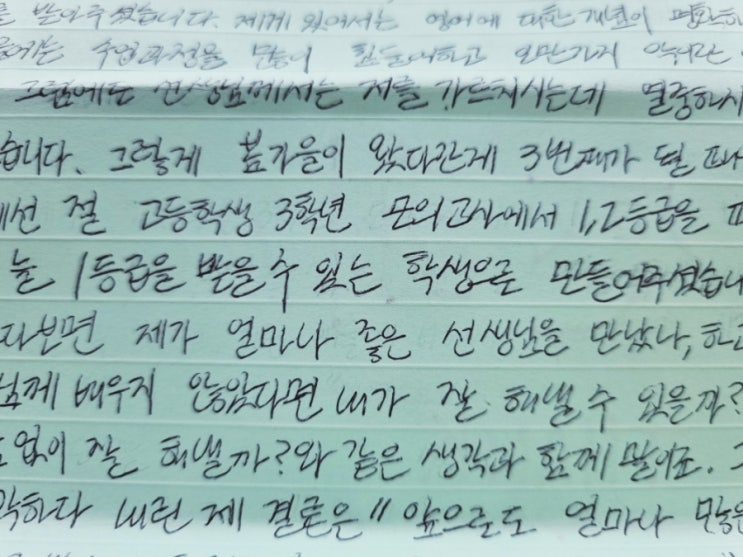 를 받아주셨습니다. 제게 있어서는 영어에 대한 개념이 명확하
수업과정을 많이 힘들어하고 오만가지
그럼에도 선생님께서는 저를 가르치시는데 열중하시
습니다. 그렇게 봄가을이 왔다간게 3번째가 될 때
에선 절 고등학생 3학년 모의고사에서 1,2등급을
늘 1등급을 받을 수 있는 학생으로 만들어주셨습니
다보면 제가 얼마나 좋은 선생님을 만났나, 하고
님께 배우지 않았다면 내가 잘 해낼 수 있을까?
없이 잘 해낼까?와 같은 생각과 함께 말이죠. 그
각하다 내린 제 결론은 "앞으로도 얼마나 많은